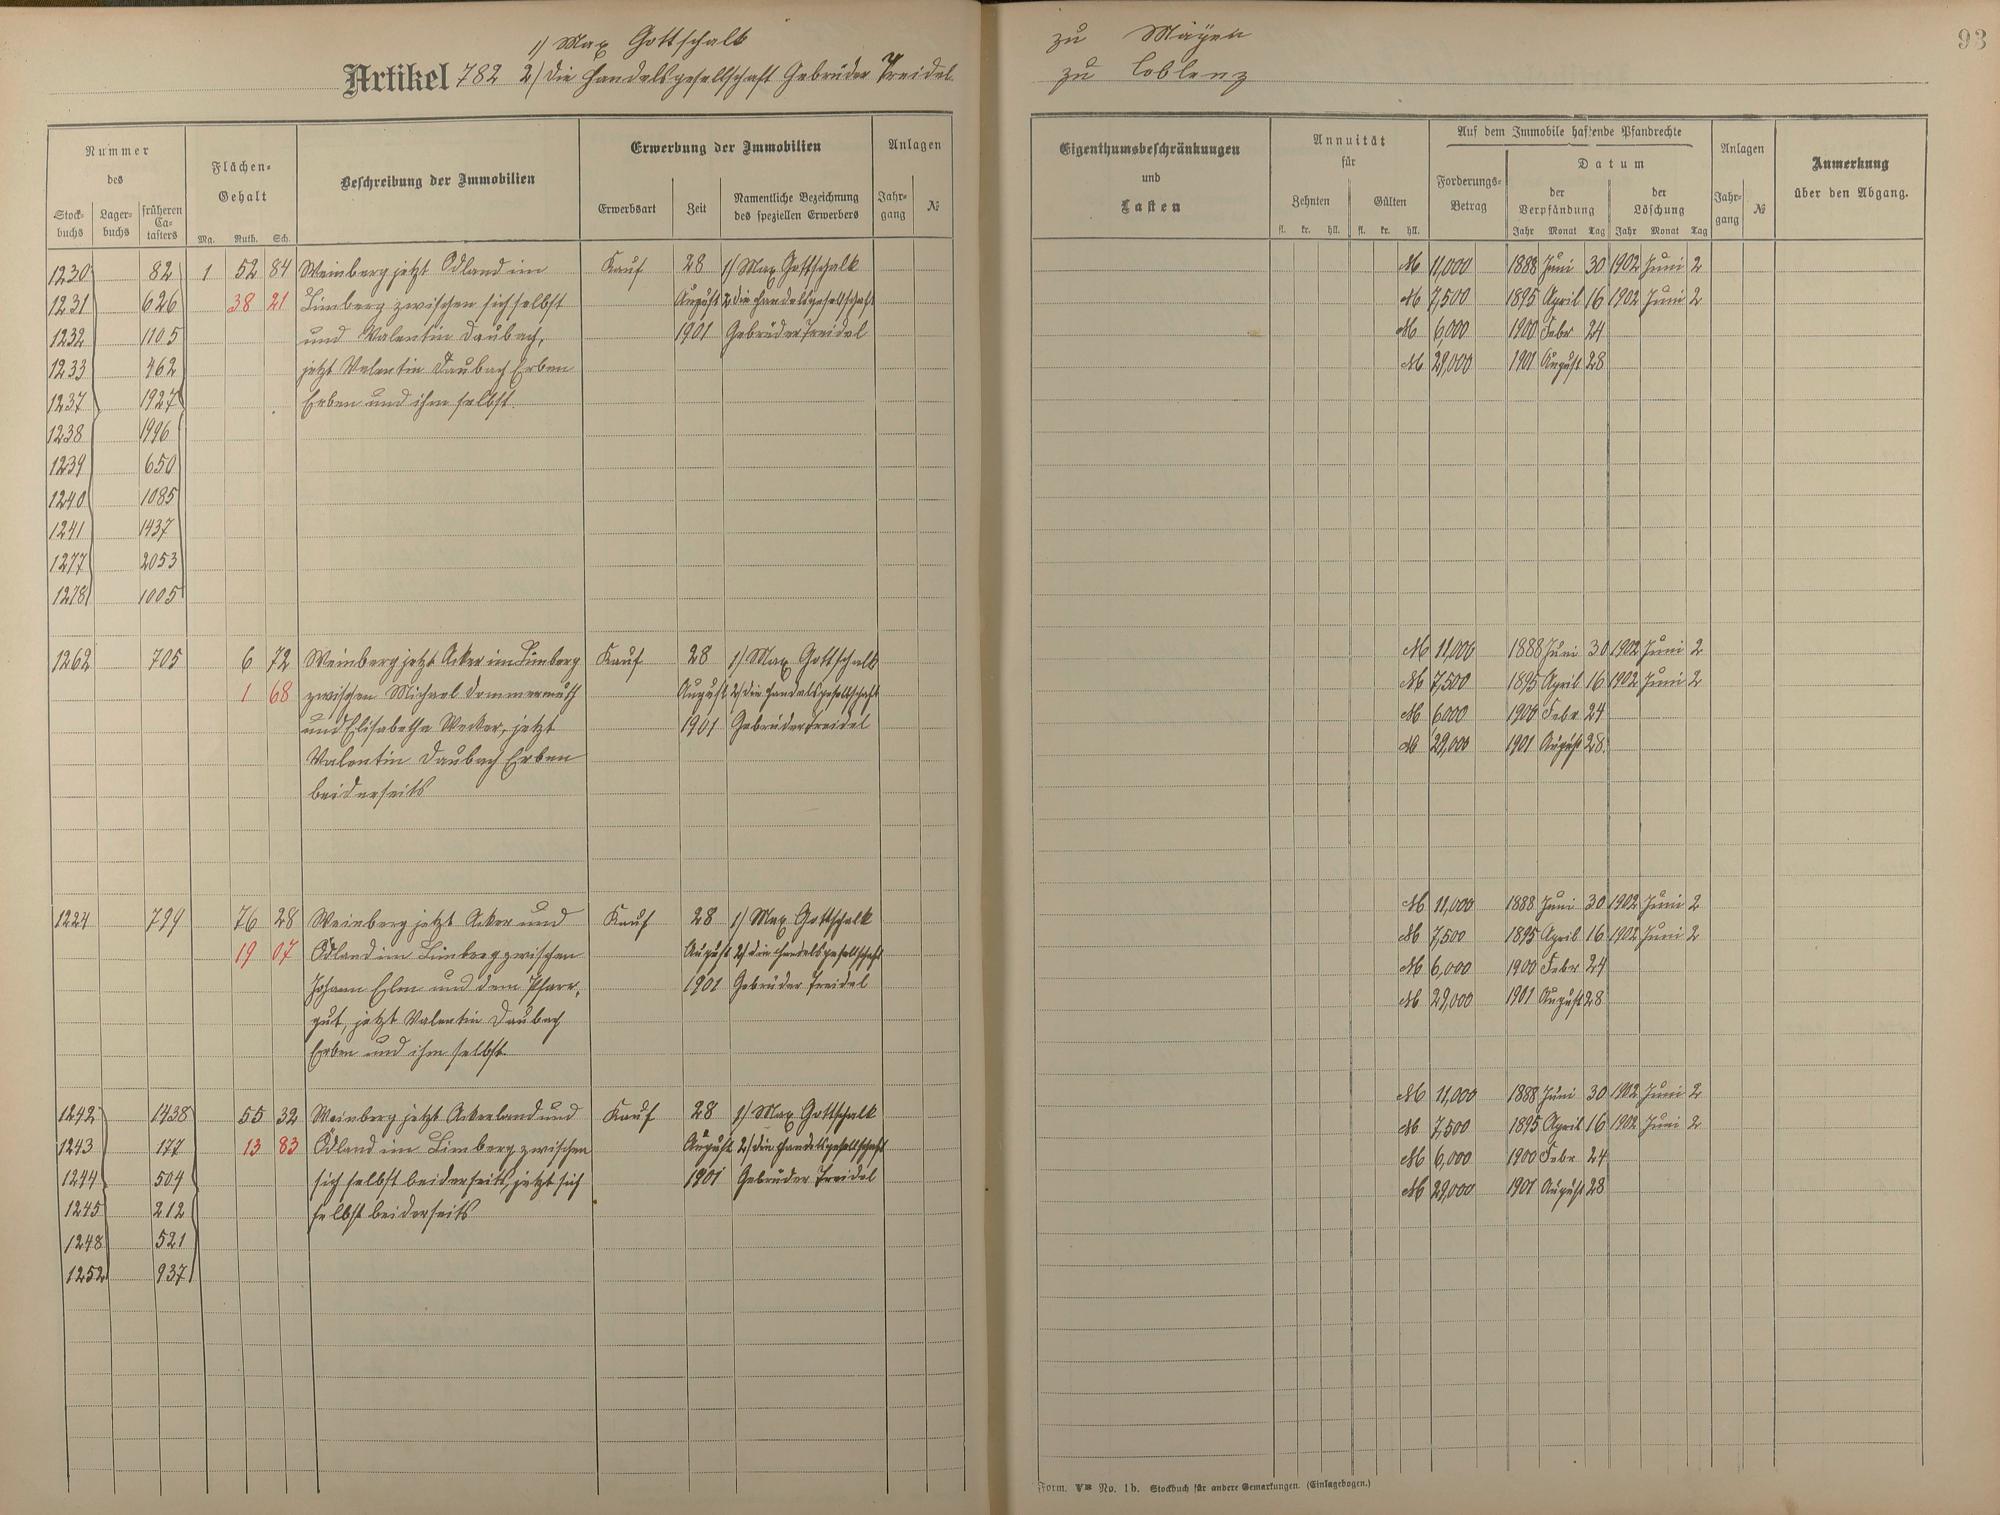 1) Max Gottschalk zu Mayen
Artikel 782 2) die Handelsgesellschaft Gebrüder Treidel zu Coblenz
93
Nummer
des
Stock-
buchs
Lager-
buchs
früheren
Ca-
tasters
Flächen-
Gehalt
Mg. Ruth. Sch.
Beschreibung der Immobilien
Erwerbung der Immobilien
Erwerbsart
Zeit
Namentliche Bezeichnung
des speziellen Erwerbers
Anlagen
Jahr-
gang
№
Eigenthumsbeschränkungen
und
Lasten
Annuität
für
Zehnten
Gülten
fl. kr. hll. fl. kr. hll.
Auf dem Immobile haftende Pfandrechte
Forderungs-
Betrag
Datum
der
Verpfändung
der
Löschung
Jahr Monat Tag Jahr Monat Tag
Anlagen
Jahr-
gang
№
Anmerkung
über den Abgang.
1230 82 1 52 84 Weinberg jetzt Ödland im Kauf 28 1) Max Gottschalk M 11,000 1888 Juni 30 1902 Juni 2
1231 626 38 21 Limberg zwischen sich selbst August 2) die Handelsgesellschaft M 7,500 1895 April 16 1902 Juni 2
1232 1105 und Valentin Daubach, 1901 Gebrüder Treidel M 6,000 1900 Febr 24
1233 462 jetzt Valentin Daubach Erben M 29,000 1901 August 28
1237 1927 Erben und ihm selbst
1238 1996
1239 650
1240 1085
1241 1437
1277 2053
1278 1005
1262 705 6 72 Weinberg jetzt Acker im Limberg Kauf 28 1) Max Gottschalk M 11,000 1888 Juni 30 1902 Juni 2
1 68 zwischen Michael Dommermuth August 2) die Handelsgesellschaft M 7,500 1895 April 16 1902 Juni 2
und Elisabetha Wecker, jetzt 1901 Gebrüder Treidel M 6000 1900 Febr 24
Valentin Daubach Erben M 29,000 1901 August 28
beiderseits
1224 799 76 28 Weinberg jetzt Acker und Kauf 28 1) Max Gottschalk M 11,000 1888 Juni 30 1902 Juni 2
19 07 Ödland im Limberg zwischen August 2) die Handelsgesellschaft M 7,500 1895 April 16 1902 Juni 2
Johann Elm und dem Pfarr- 1901 Gebrüder Treidel M 6,000 1900 Febr 24
gut, jetzt Valentin Daubach M 29,000 1901 August 28
Erben und ihm selbst
1242 1438 55 32 Weinberg jetzt Ackerland und Kauf 28 1) Max Gottschalk M 11,000 1888 Juni 30 1902 Juni 2
1243 177 13 83 Ödland im Limberg zwischen August 2) die Handelsgesellschaft M 7,500 1895 April 16 1902 Juni 2
1244 504 sich selbst beiderseits, jetzt sich 1901 Gebrüder Treidel M 6,000 1900 Febr 24
1245 212 selbst beiderseits M 29,000 1901 August 28
1248 521
1252 937
Form. No. 1b. Stockbuch für andere Gemarkungen. (Einlagebogen.)